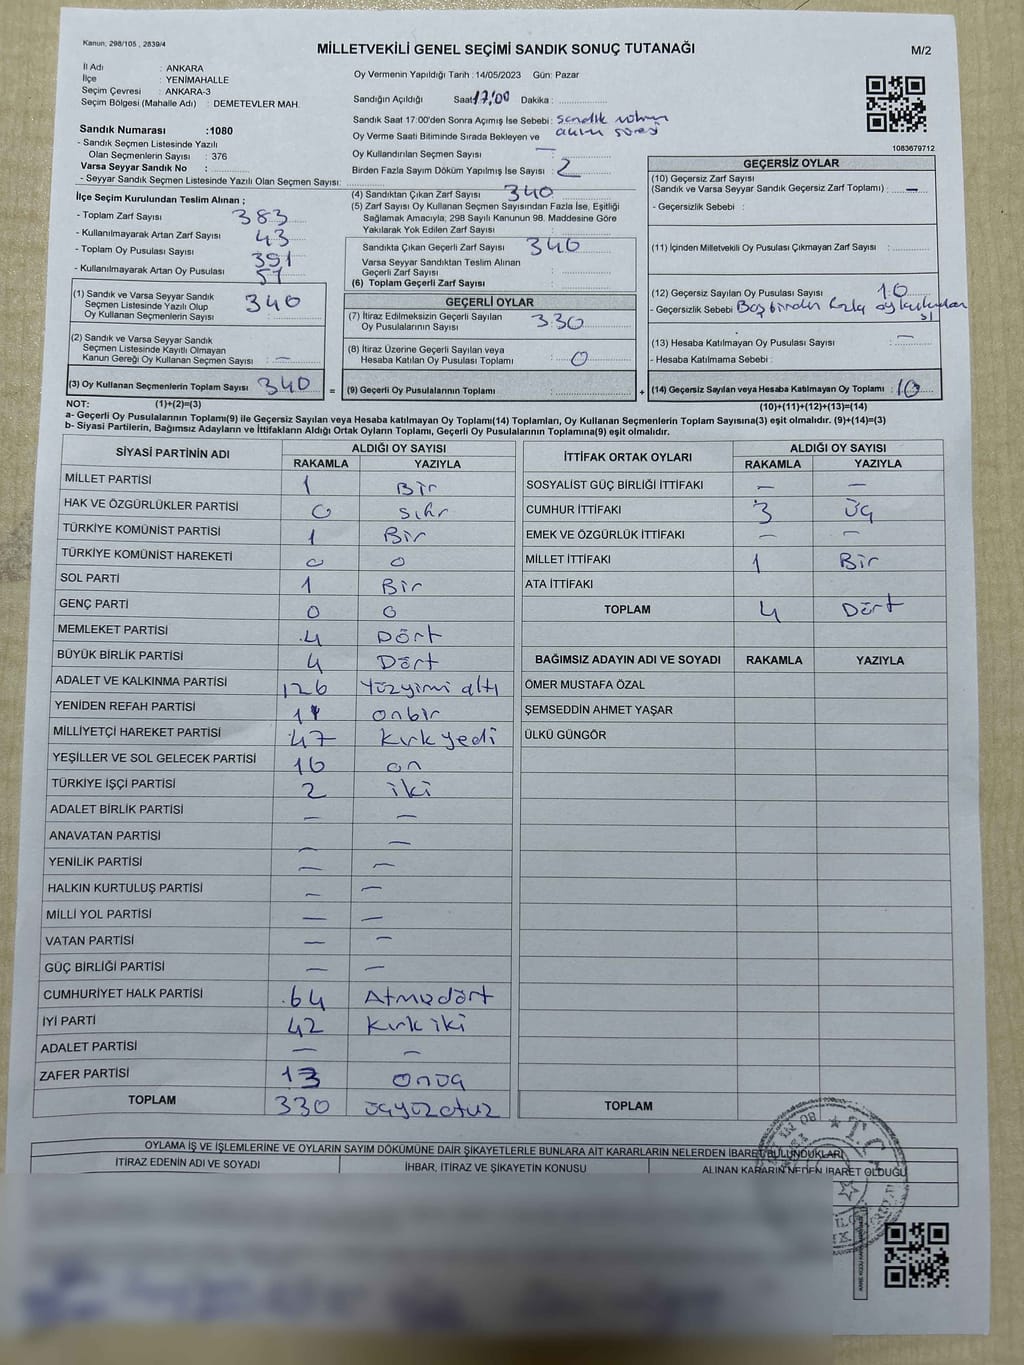 Kanun, 298/105 , 2839/4
MİLLETVEKİLİ GENEL SEÇİMİ SANDIK SONUÇ TUTANAĞI
M/2
İl Adı : ANKARA
İlçe : YENİMAHALLE
Seçim Çevresi : ANKARA-3
Seçim Bölgesi (Mahalle Adı) : DEMETEVLER MAH.
Sandık Numarası :1080
- Sandık Seçmen Listesinde Yazılı
Olan Seçmenlerin Sayısı : 376
Varsa Seyyar Sandık No :
- Seyyar Sandık Seçmen Listesinde Yazılı Olan Seçmen Sayısı:
İlçe Seçim Kurulundan Teslim Alınan ;
- Toplam Zarf Sayısı 383
- Kullanılmayarak Artan Zarf Sayısı 43
- Toplam Oy Pusulası Sayısı 391
- Kullanılmayarak Artan Oy Pusulası 51
(1) Sandık ve Varsa Seyyar Sandık
Seçmen Listesinde Yazılı Olup
Oy Kullanan Seçmenlerin Sayısı : 340
(2) Sandık ve Varsa Seyyar Sandık
Seçmen Listesinde Kayıtlı Olmayan
Kanun Gereği Oy Kullanan Seçmen Sayısı : —
(3) Oy Kullanan Seçmenlerin Toplam Sayısı 340
Oy Vermenin Yapıldığı Tarih : 14/05/2023 Gün: Pazar
Sandığın Açıldığı Saat 17:00 Dakika :
Sandık Saat 17:00'den Sonra Açımış İse Sebebi : sandık
Oy Verme Saati Bitiminde Sırada Bekleyen ve süresi
Oy Kullandırılan Seçmen Sayısı : —
Birden Fazla Sayım Döküm Yapılmış İse Sayısı : 2
(4) Sandıktan Çıkan Zarf Sayısı 340
(5) Zarf Sayısı Oy Kullanan Seçmen Sayısından Fazla İse, Eşitliği
Sağlamak Amacıyla, 298 Sayılı Kanunun 98. Maddesine Göre
Yakılarak Yok Edilen Zarf Sayısı :
Sandıkta Çıkan Geçerli Zarf Sayısı 340
Varsa Seyyar Sandıktan Teslim Alınan
Geçerli Zarf Sayısı :
(6) Toplam Geçerli Zarf Sayısı :
GEÇERLİ OYLAR
(7) İtiraz Edilmeksizin Geçerli Sayılan
Oy Pusulalarının Sayısı : 330
(8) İtiraz Üzerine Geçerli Sayılan veya
Hesaba Katılan Oy Pusulası Toplamı : 0
= (9) Geçerli Oy Pusulalarının Toplamı :
1083679712
GEÇERSİZ OYLAR
(10) Geçersiz Zarf Sayısı
(Sandık ve Varsa Seyyar Sandık Geçersiz Zarf Toplamı) : —
- Geçersizlik Sebebi :
(11) İçinden Milletvekili Oy Pusulası Çıkmayan Zarf Sayısı :
(12) Geçersiz Sayılan Oy Pusulası Sayısı : 10
- Geçersizlik Sebebi fazla
(13) Hesaba Katılmayan Oy Pusulası Sayısı : —
- Hesaba Katılmama Sebebi :
+ (14) Geçersiz Sayılan veya Hesaba Katılmayan Oy Toplamı : 10
NOT: (1)+(2)=(3)
(10)+(11)+(12)+(13)=(14)
a- Geçerli Oy Pusulalarının Toplamı(9) ile Geçersiz Sayılan veya Hesaba katılmayan Oy Toplamı(14) Toplamları, Oy Kullanan Seçmenlerin Toplam Sayısına(3) eşit olmalıdır. (9)+(14)=(3)
b- Siyasi Partilerin, Bağımsız Adayların ve İttifakların Aldığı Ortak Oyların Toplamı, Geçerli Oy Pusulalarının Toplamına(9) eşit olmalıdır.
SİYASİ PARTİNİN ADI ALDIĞI OY SAYISI
RAKAMLA YAZIYLA
MİLLET PARTİSİ 1 Bir
HAK VE ÖZGÜRLÜKLER PARTİSİ 0 Sıfır
TÜRKİYE KOMÜNİST PARTİSİ 1 Bir
TÜRKİYE KOMÜNİST HAREKETİ 0 0
SOL PARTİ 1 Bir
GENÇ PARTİ 0 0
MEMLEKET PARTİSİ 4 Dört
BÜYÜK BİRLİK PARTİSİ 4 Dört
ADALET VE KALKINMA PARTİSİ 126 Yüzyirmi altı
YENİDEN REFAH PARTİSİ 11 onbir
MİLLİYETÇİ HAREKET PARTİSİ 47 Kırkyedi
YEŞİLLER VE SOL GELECEK PARTİSİ 10 on
TÜRKİYE İŞÇİ PARTİSİ 2 iki
ADALET BİRLİK PARTİSİ — —
ANAVATAN PARTİSİ — —
YENİLİK PARTİSİ — —
HALKIN KURTULUŞ PARTİSİ — —
MİLLİ YOL PARTİSİ — —
VATAN PARTİSİ — —
GÜÇ BİRLİĞİ PARTİSİ — —
CUMHURİYET HALK PARTİSİ 64 Atmışdört
İYİ PARTİ 42 Kırkiki
ADALET PARTİSİ — —
ZAFER PARTİSİ 13 Onüç
TOPLAM 330 üçyüzotuz
İTTİFAK ORTAK OYLARI ALDIĞI OY SAYISI
RAKAMLA YAZIYLA
SOSYALİST GÜÇ BİRLİĞİ İTTİFAKI — —
CUMHUR İTTİFAKI 3 üç
EMEK VE ÖZGÜRLÜK İTTİFAKI — —
MİLLET İTTİFAKI 1 Bir
ATA İTTİFAKI
TOPLAM 4 Dört
BAĞIMSIZ ADAYIN ADI VE SOYADI RAKAMLA YAZIYLA
ÖMER MUSTAFA ÖZAL
ŞEMSEDDİN AHMET YAŞAR
ÜLKÜ GÜNGÖR
TOPLAM
OYLAMA İŞ VE İŞLEMLERİNE VE OYLARIN SAYIM DÖKÜMÜNE DAİR ŞİKAYETLERLE BUNLARA AİT KARARLARIN NELERDEN İBARET BULUNDUKLARI
İTİRAZ EDENİN ADI VE SOYADI İHBAR, İTİRAZ VE ŞİKAYETİN KONUSU ALINAN KARARIN NEDEN İBARET OLDUĞU
T.C.